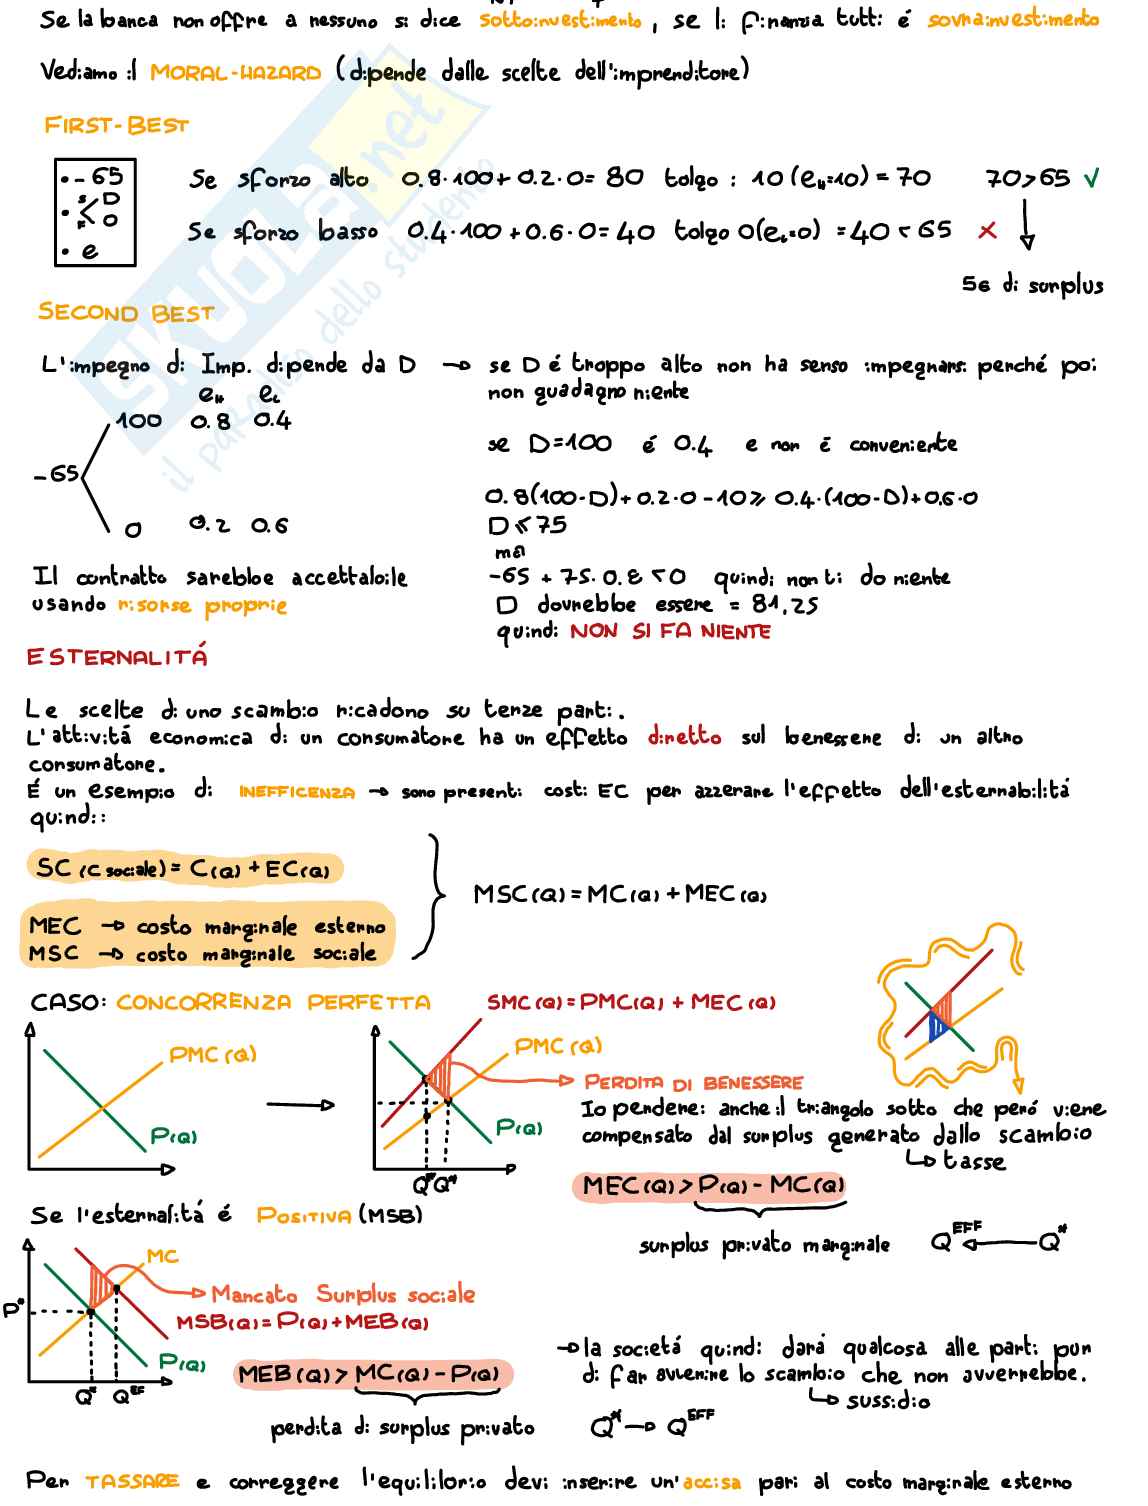 Se la banca non offre a nessuno si dice sottoinvestimento, se li finanzia tutti é sovrainvestimento
Vediamo il MORAL-HAZARD (dipende dalle scelte dell'imprenditore)
FIRST-BEST
• -65
• S D
F 0
• e
Se sforzo alto 0.8·100+0.2·0=80 tolgo: 10 (eH=10) = 70 70>65 ✓
Se sforzo basso 0.4·100+0.6·0=40 tolgo 0(eL=0) =40<65 ✗
5€ di surplus
SECOND BEST
L'impegno di Imp. dipende da D → se D é troppo alto non ha senso impegnarsi perché poi
non guadagno niente
eH eL
100 0.8 0.4
-65
0 0.2 0.6
se D=100 é 0.4 e non é conveniente
0.8(100-D)+0.2·0-10⩾0.4·(100-D)+0.6·0
D⩽75
ma
-65+75·0.8<0 quindi non ti do niente
D dovrebbe essere = 81.25
quindi NON SI FA NIENTE
Il contratto sarebbe accettabile
usando risorse proprie
ESTERNALITÁ
Le scelte di uno scambio ricadono su terze parti.
L'attivitá economica di un consumatore ha un effetto diretto sul benessere di un altro
consumatore.
É un esempio di INEFFICENZA → sono presenti costi EC per azzerare l'effetto dell'esternabilitá
quindi:
SC (C sociale) = C(Q) + EC(Q)
MEC → costo marginale esterno
MSC → costo marginale sociale
MSC(Q) = MC(Q) + MEC(Q)
CASO: CONCORRENZA PERFETTA
SMC(Q)=PMC(Q) + MEC(Q)
PMC(Q)
P(Q)
PMC(Q)
P(Q)
Q* Q*
PERDITA DI BENESSERE
Io perderei anche il triangolo sotto che peró viene
compensato dal surplus generato dallo scambio
↳ tasse
MEC(Q) > P(Q) - MC(Q)
surplus privato marginale
Q^EFF ← Q*
Se l'esternalitá é POSITIVA (MSB)
MC
P*
Mancato Surplus sociale
MSB(Q)=P(Q)+MEB(Q)
P(Q)
Q* Q^EF
MEB(Q) > MC(Q) - P(Q)
perdita di surplus privato
→ la societá quindi dará qualcosa alle parti pur
di far avvenire lo scambio che non avverrebbe.
↳ sussidio
Q* → Q^EFF
Per TASSARE e correggere l'equilibrio devi inserire un'accisa pari al costo marginale esterno
SKUOLA.net
il paradiso dello studente